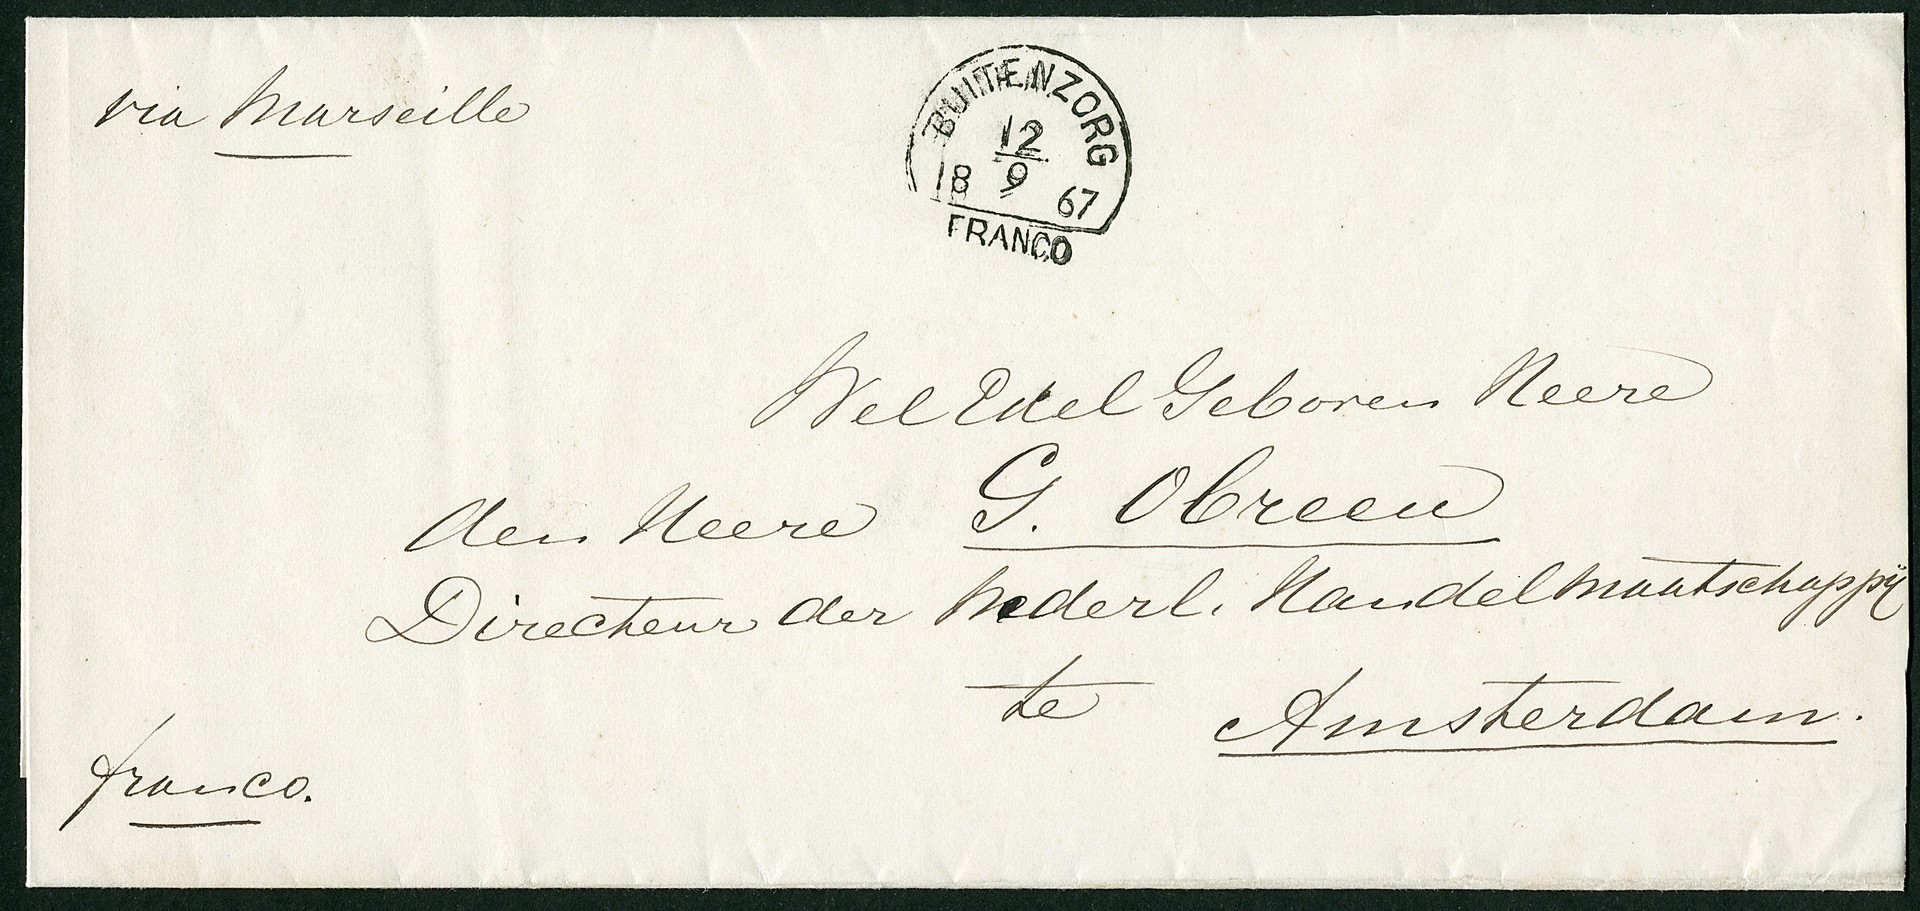 via Marseille
BUITENZORG
12
9
18 67
FRANCO
Wel Edel Geboren Heere
den Heere G. Obreen
Directeur der Nederl. Handelmaatschappij
te Amsterdam.
franco.